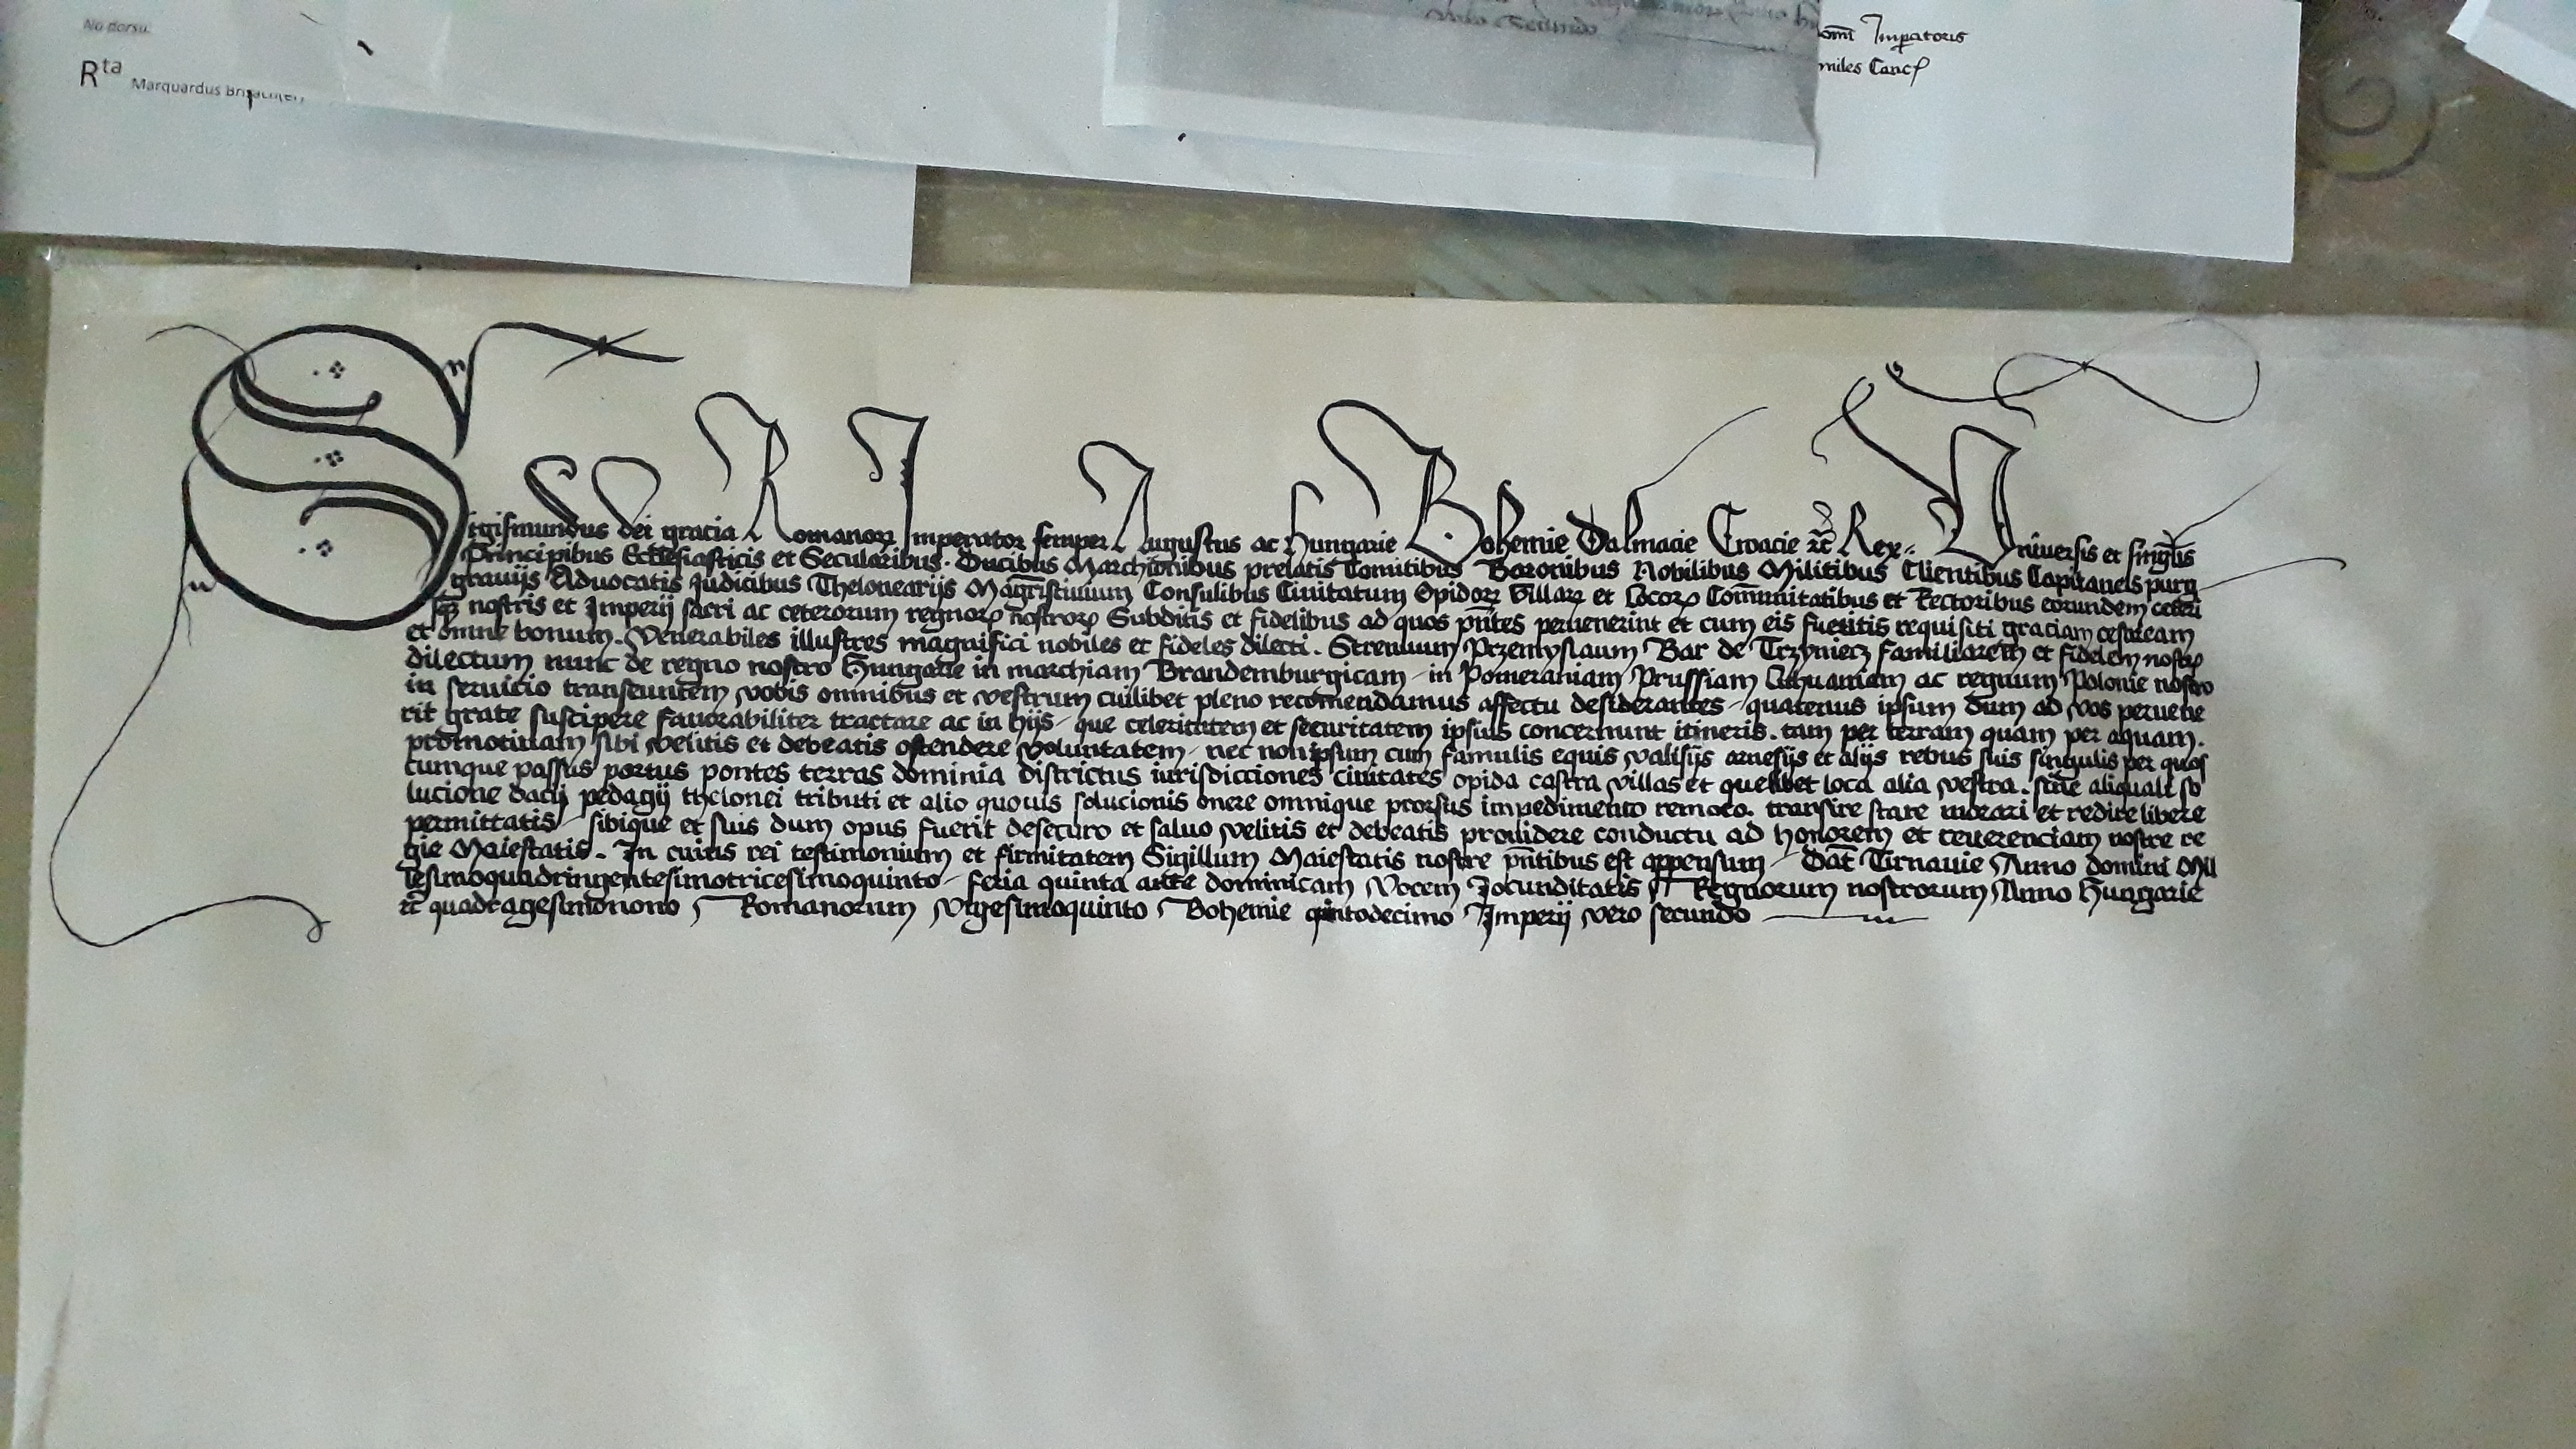 Na dorsu.
Rta Marquardus Brisacher
Vero Secundo
Imperatoris
miles Canc
Sigismundus dei gracia Romanorꝝ Imperator semper Augustus ac Hungarie Bohemie Dalmacie Croacie ꝛc̄ Rex Universis et singulis
Principibus Ecclesiasticis et Secularibus. Ducibus Marchionibus prelatis Comitibus Baronibus Nobilibus Militibus Clientibus Capitaneis purg
gravijs Advocatis Judicibus Thelonearijs Magr̄istiuium Consulibus Ciuitatum Opidorꝝ villarꝝ et Locorꝝ Com̄unitatibus et Rectoribus eorundem ceteri
sqꝫ nostris et Imperij sacri ac ceterorum regnorꝝ nostrorꝝ Subditis et fidelibus ad quos pn̄tes peruenerint et cum eis fuetitis requisiti graciam cesaream
et omne bonum. Venerabiles illustres magnifici nobiles et fideles dilecti. Strenuum Przemyslaum Bar de Trzyniecz familiarem et fidelem nostrꝝ
dilectum nunc de regno nostro Hungarie in marchiam Brandemburgicam in Pomeraniam Prussiam Lithuaniam ac regnum Polonie nostro
in seruicio transeuntem vobis omnibus et vestrum cuilibet pleno recom̄endamus affectu desiderantes quatenus ipsum dum ad vos peruene
rit grate suscipere fauorabiliter tractare ac in hijs que celeritatem et securitatem ipsius concernunt itineris. tam per terram quam per aquam.
promotiuam sibi velitis et debeatis ostendere voluntatem nec non ipsum cum famulis equis valisijs arnesijs et alijs rebus suis singulis per quos
cumque passus portus pontes terras dominia districtus iurisdicciones ciuitates opida castra villas et quelibet loca alia vestra. sine aliquali so
lucione dacij pedagij thelonei tributi et alio quouis solucionis onere omnique prorsus impedimento remoto. transire stare morari et redire libere
permittatis sibique et suis dum opus fuerit desecuro et saluo velitis et debeatis prouidere conductu ad honorem et reuerenciam nostre re
gie Maiestatis. In cuius rei testimonium et firmitatem Sigillum Maiestatis nostre pn̄tibus est appensum Dat̄ Tirnauie Anno domini Mil
lesimoquadringentesimotricesimoquinto feria quinta ante dominicam Vocem Jocunditatis Regnorum nostrorum Anno Hungarie
ꝛc̄ quadragesimonono Romanorum vigesimoquinto Bohemie quintodecimo Imperij vero secundo